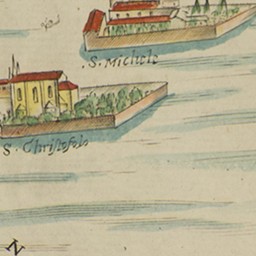 S. Michele
S. Christofolo
N